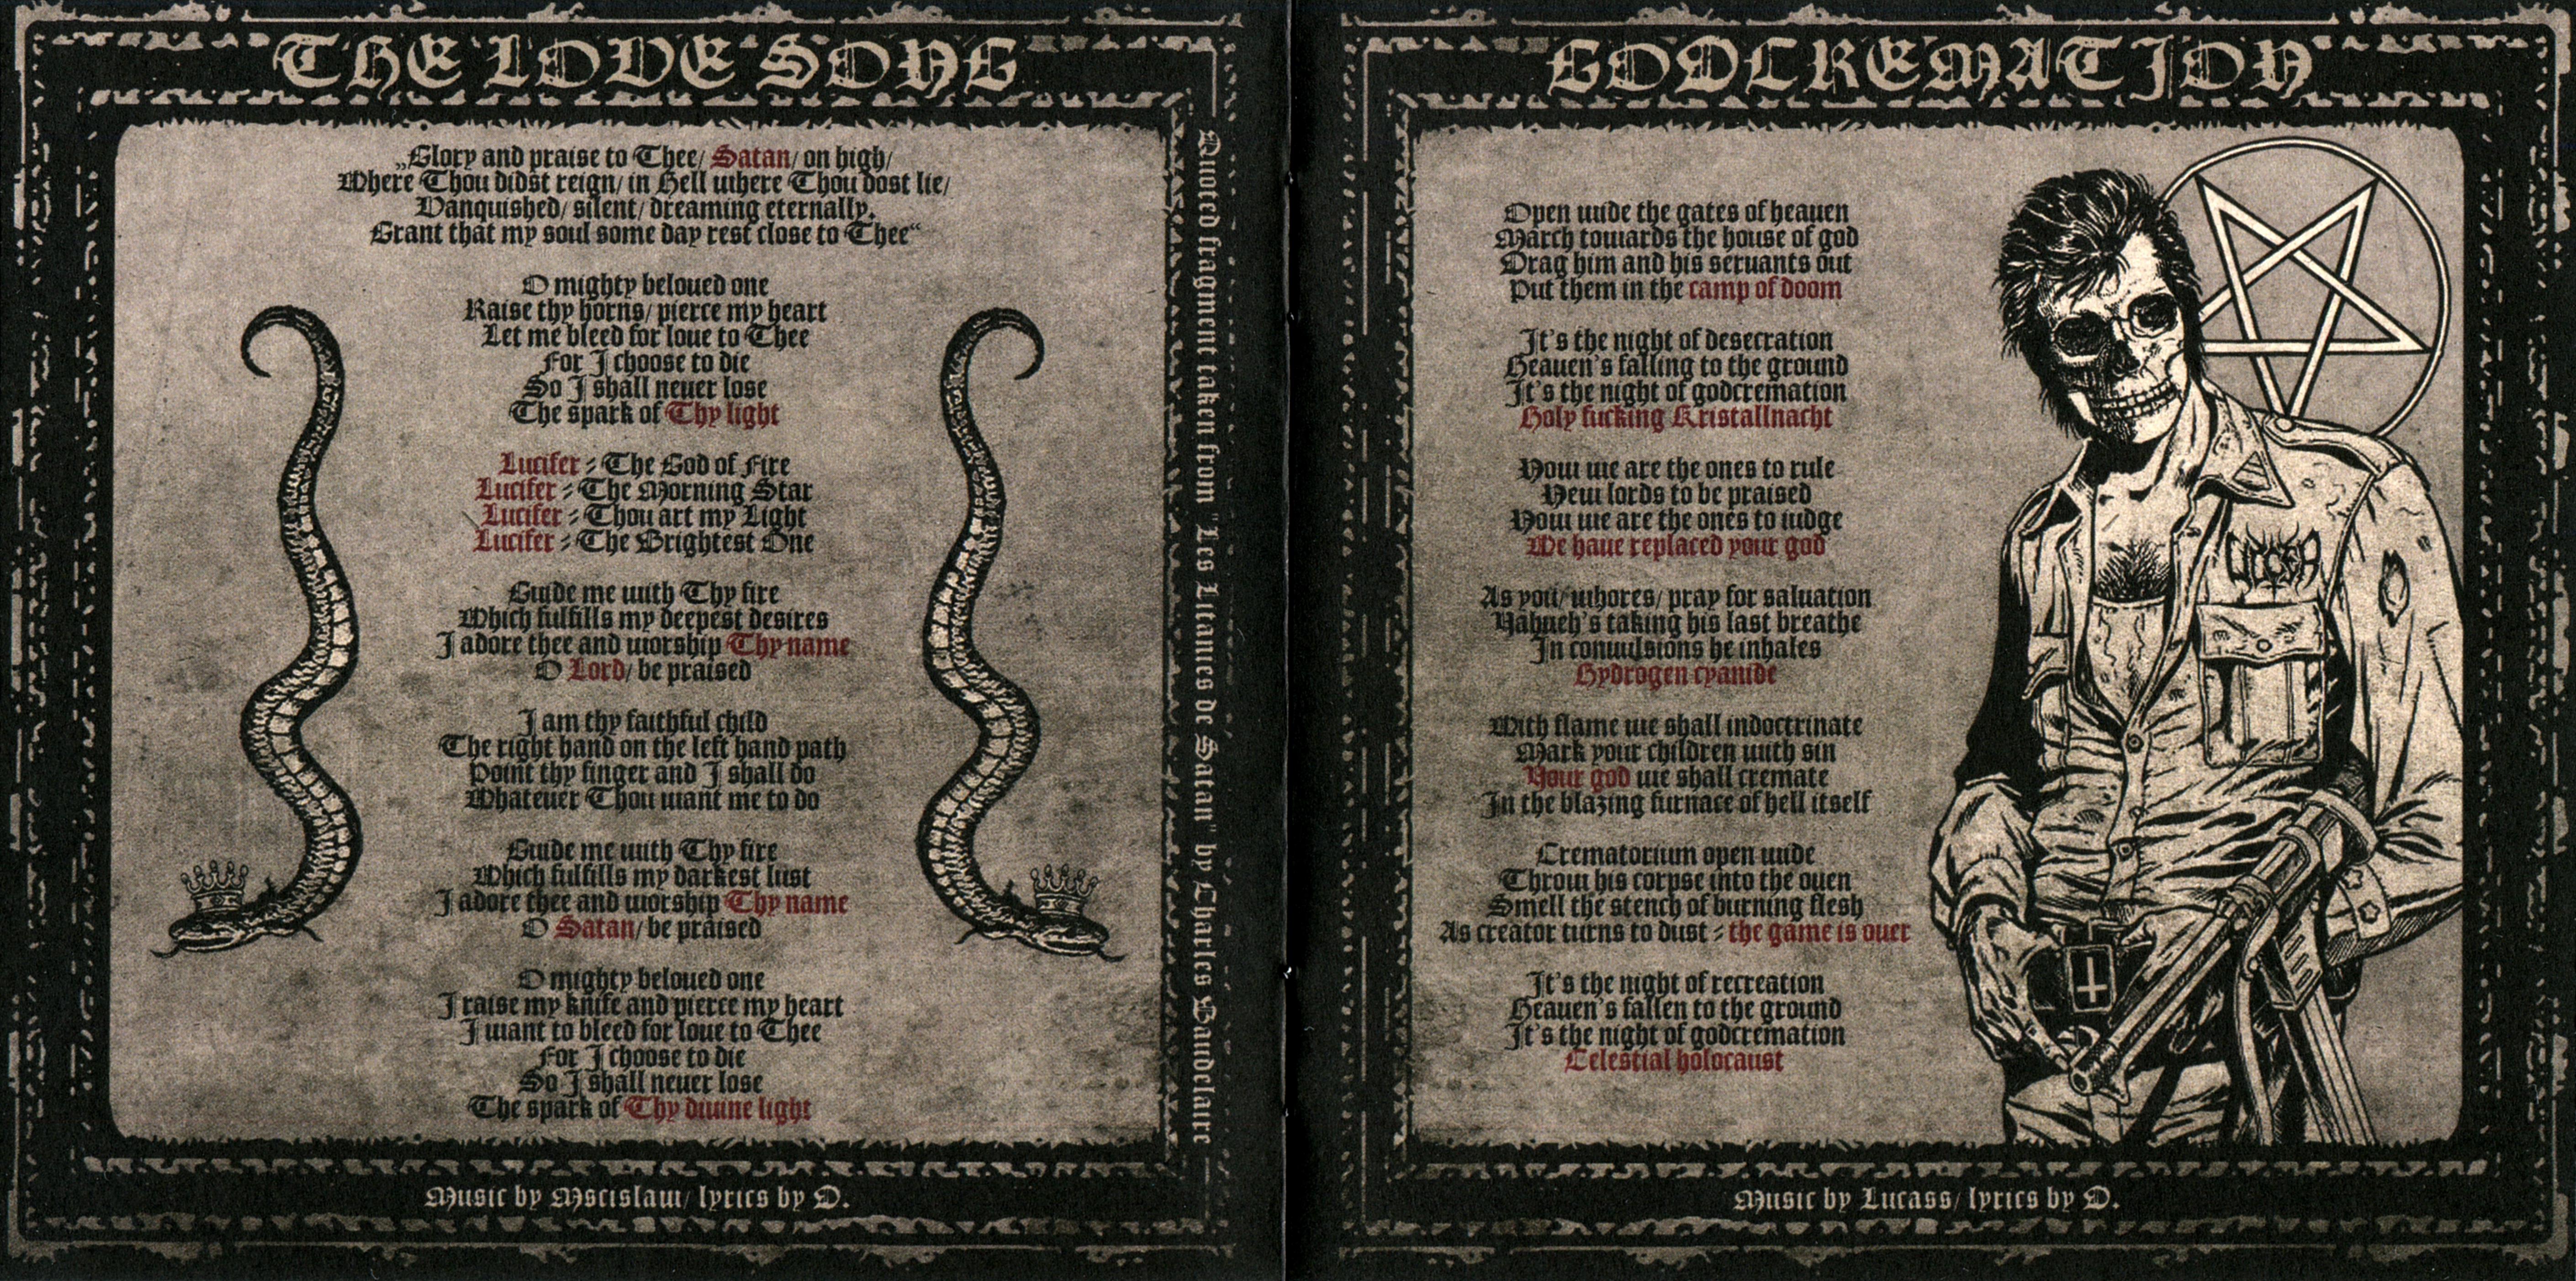 THE LOVE SONG
„Glory and praise to Thee, Satan, on high,
Where Thou didst reign, in Hell where Thou dost lie,
Vanquished, silent, dreaming eternally.
Grant that my soul some day rest close to Thee“
O mighty beloved one
Raise thy horns, pierce my heart
Let me bleed for love to Thee
For I choose to die
So I shall never lose
The spark of Thy light
Lucifer - The God of Fire
Lucifer - The Morning Star
Lucifer - Thou art my Light
Lucifer - The Brightest One
Guide me with Thy fire
Which fulfills my deepest desires
I adore thee and worship Thy name
O Lord, be praised
I am thy faithful child
The right hand on the left hand path
Point thy finger and I shall do
Whatever Thou want me to do
Guide me with Thy fire
Which fulfills my darkest lust
I adore thee and worship Thy name
O Satan, be praised
O mighty beloved one
I raise my knife and pierce my heart
I want to bleed for love to Thee
For I choose to die
So I shall never lose
The spark of Thy divine light
Quoted fragment taken from "Les Litanies de Satan" by Charles Baudelaire
Music by Mscislaw, lyrics by D.
GODCREMATION
Open wide the gates of heaven
March towards the house of god
Drag him and his servants out
Put them in the camp of doom
It's the night of desecration
Heaven's falling to the ground
It's the night of godcremation
Holy fucking Kristallnacht
Now we are the ones to rule
New lords to be praised
Now we are the ones to judge
We have replaced your god
As you, whores, pray for salvation
Yahweh's taking his last breathe
In convulsions he inhales
Hydrogen cyanide
With flame we shall indoctrinate
Mark your children with sin
Your god we shall cremate
In the blazing furnace of hell itself
Crematorium open wide
Throw his corpse into the oven
Smell the stench of burning flesh
As creator turns to dust - the game is over
It's the night of recreation
Heaven's fallen to the ground
It's the night of godcremation
Celestial holocaust
Music by Lucass, lyrics by D.